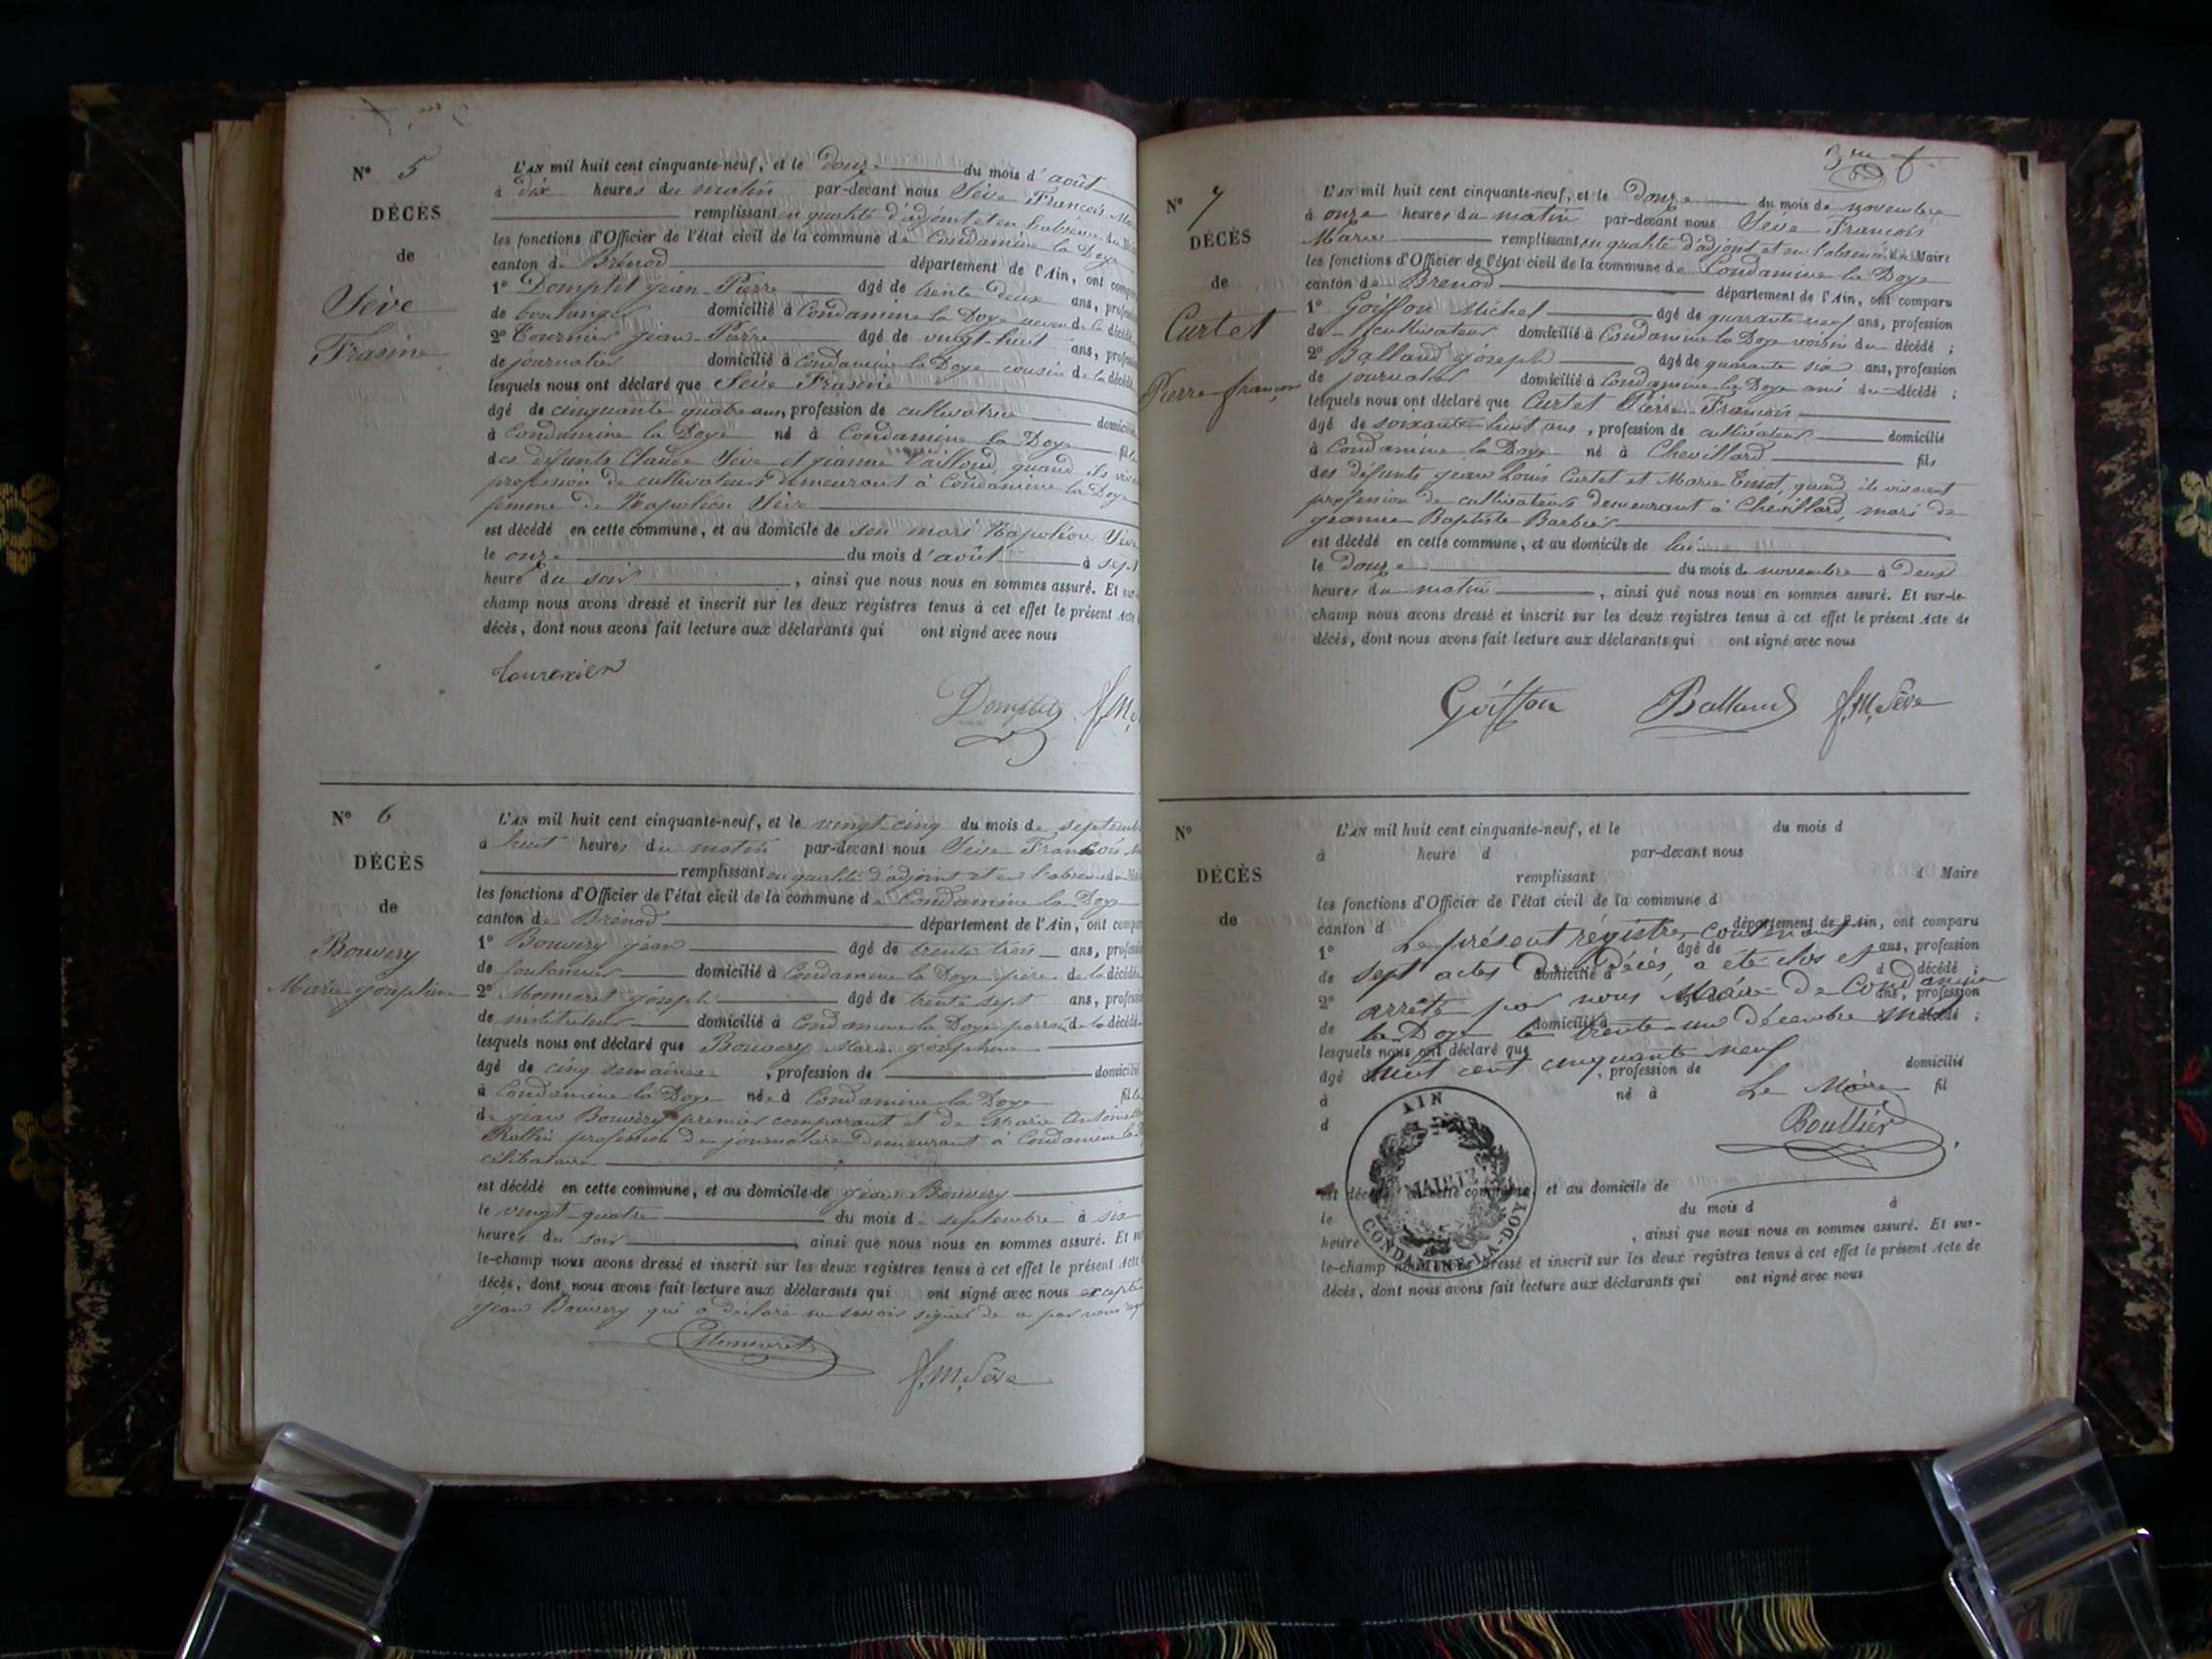 N° 5
DÉCÈS
de
Sève
Frasine
L'AN mil huit cent cinquante-neuf, et le douze du mois d'août
à dix heures du matin par-devant nous Sève François
remplissant en qualité d'adjoint et en l'absence du
les fonctions d'Officier de l'état civil de la commune de Condamine la Doye
canton de Brénod département de l'Ain, ont
1° Domptet jean-Pierre âgé de trente deux ans,
de boulanger domicilié à Condamine la Doye neveu de la décédée
2° Tournier jean-Pierre âgé de vingt-huit ans,
de journalier domicilié à Condamine la Doye cousin de la décédée
lesquels nous ont déclaré que Sève Frasine
âgé de cinquante quatre ans, profession de cultivatrice
à Condamine la Doye né à Condamine la Doye
des défunts Claude Sève et jeanne quand ils
profession de cultivateurs demeurant à Condamine la Doye
femme de Napoléon Sève
est décédé en cette commune, et au domicile de son mari Napoléon Sève
le onze du mois d'août à sept
heure du soir, ainsi que nous nous en sommes assuré. Et sur-
champ nous avons dressé et inscrit sur les deux registres tenus à cet effet le présent Acte
décès, dont nous avons fait lecture aux déclarants qui ont signé avec nous
Tournier
Domptet f.M.
N° 6
DÉCÈS
de
Bouvery
Marie josephine
L'AN mil huit cent cinquante-neuf, et le vingt-cinq du mois de septembre
à huit heures du matin par-devant nous Sève François
remplissant en qualité d'adjoint et en l'absence du
les fonctions d'Officier de l'état civil de la commune de Condamine la Doye
canton de Brénod département de l'Ain, ont
1° Bouvery jean âgé de trente trois ans,
de domicilié à Condamine la Doye père de la décédée
2° Monneret joseph âgé de trente sept ans,
de instituteur domicilié à Condamine la Doye parrain de la décédée
lesquels nous ont déclaré que Bouvery Marie josephine
âgé de cinq semaines, profession de
à Condamine la Doye née à Condamine la Doye fille
de jean Bouvery premier comparant et de Marie Antoinette
profession de journalière demeurant à Condamine la
célibataire
est décédé en cette commune, et au domicile de jean Bouvery
le vingt-quatre du mois de septembre à six
heures du soir, ainsi que nous nous en sommes assuré. Et
le-champ nous avons dressé et inscrit sur les deux registres tenus à cet effet le présent Acte
décès, dont nous avons fait lecture aux déclarants qui ont signé avec nous excepté
jean Bouvery qui a déclaré ne savoir signer de ce par nous
Monneret
f.M. Sève
N° 7
DÉCÈS
de
Curtet
Pierre françois
L'AN mil huit cent cinquante-neuf, et le douze du mois de novembre
à onze heures du matin par-devant nous Sève François
Marie remplissant en qualité d'adjoint et en l'absence du Maire
les fonctions d'Officier de l'état civil de la commune de Condamine la Doye
canton de Brénod département de l'Ain, ont comparu
1° Goiffon Michel âgé de quarante neuf ans, profession
de cultivateur domicilié à Condamine la Doye voisin du décédé ;
2° Balland joseph âgé de quarante six ans, profession
de journalier domicilié à Condamine la Doye ami du décédé ;
lesquels nous ont déclaré que Curtet Pierre-François
âgé de soixante-huit ans, profession de cultivateur domicilié
à Condamine la Doye né à Chevillard fils
des défunts jean Louis Curtet et Marie quand ils vivaient
profession de cultivateurs demeurant à Chevillard, mari de
jeanne Baptiste Barbier
est décédé en cette commune, et au domicile de lui
le douze du mois de novembre à deux
heures du matin, ainsi que nous nous en sommes assuré. Et sur-le-
champ nous avons dressé et inscrit sur les deux registres tenus à cet effet le présent Acte de
décès, dont nous avons fait lecture aux déclarants qui ont signé avec nous
Goiffon Balland f.M. Sève
N°
DÉCÈS
de
L'AN mil huit cent cinquante-neuf, et le du mois d
à heure d par-devant nous
remplissant d Maire
les fonctions d'Officier de l'état civil de la commune d
canton d département de l'Ain, ont comparu
Le présent régistre, contenant
1° âgé de ans, profession
sept actes de décès, a été clos et
de domicilié à d décédé ;
arrêté par nous Maire de Condamine
2° ans, profession
la Doye le trente-un décembre mil
de domicilié à décédé ;
lesquels nous ont déclaré que
huit cent cinquante neuf
âgé , profession de domicilié
à né à fil
Le Maire
d
Boullier
AIN
MAIRIE
CONDAMINE-LA-DOYE
est décédé en cette commune, et au domicile de
le du mois d à
heure , ainsi que nous nous en sommes assuré. Et sur-
le-champ nous avons dressé et inscrit sur les deux registres tenus à cet effet le présent Acte de
décès, dont nous avons fait lecture aux déclarants qui ont signé avec nous